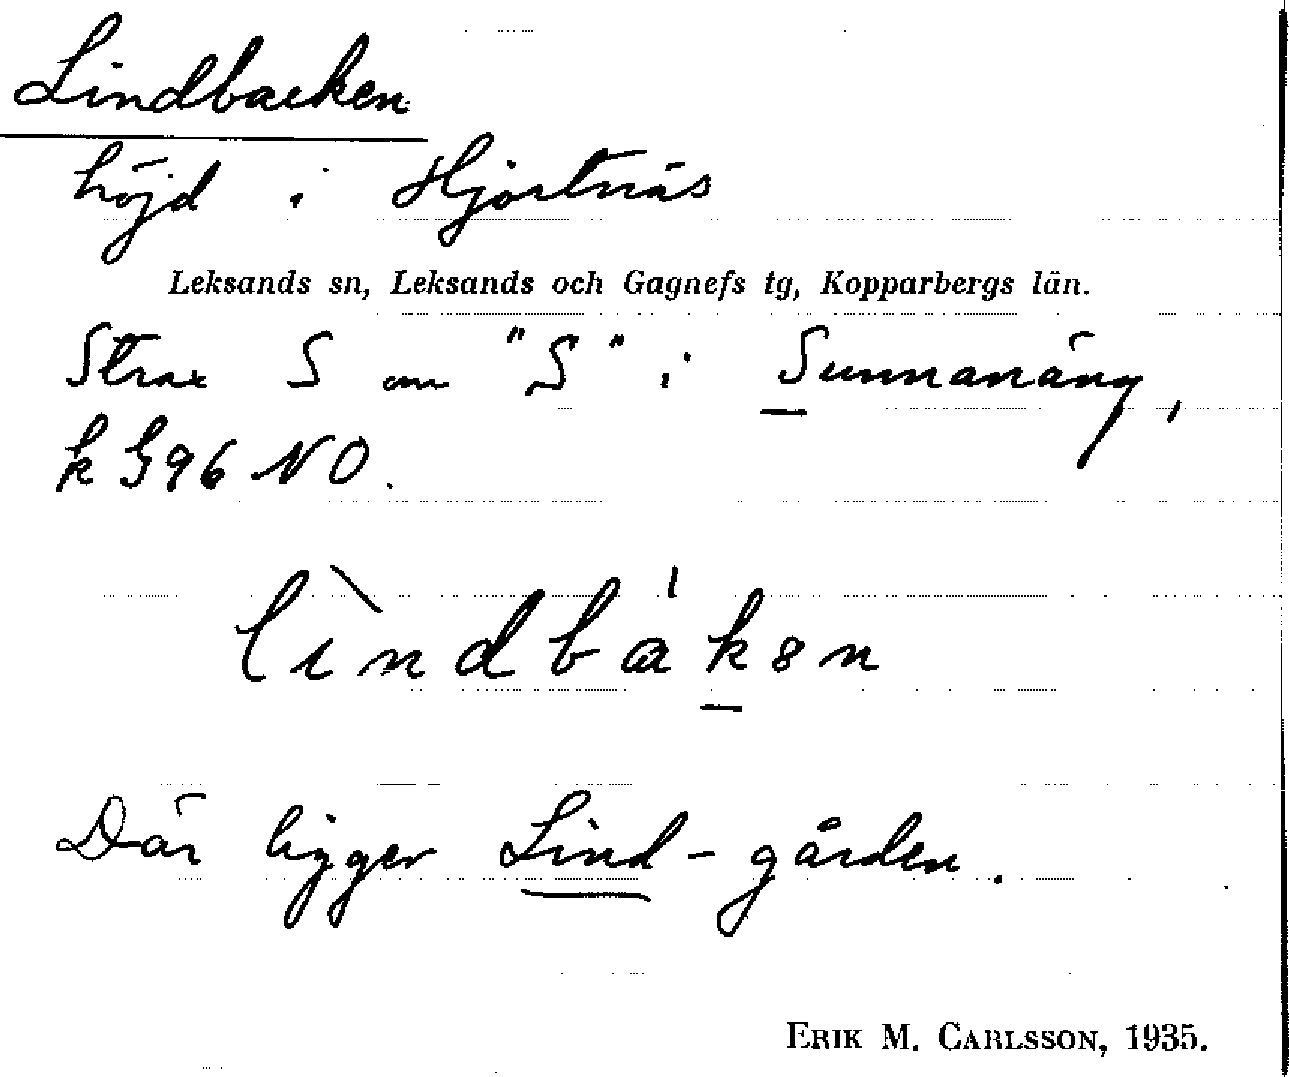 Lindbacken
höjd i Hjortnäs
Leksands sn, Leksands och Gagnefs tg, Kopparbergs län.
Strax S om "S" i Sunnanäng,
k G96 NO.
lìndbakən
Där ligger Lind-gården.
ERIK M. CARLSSON, 1935.